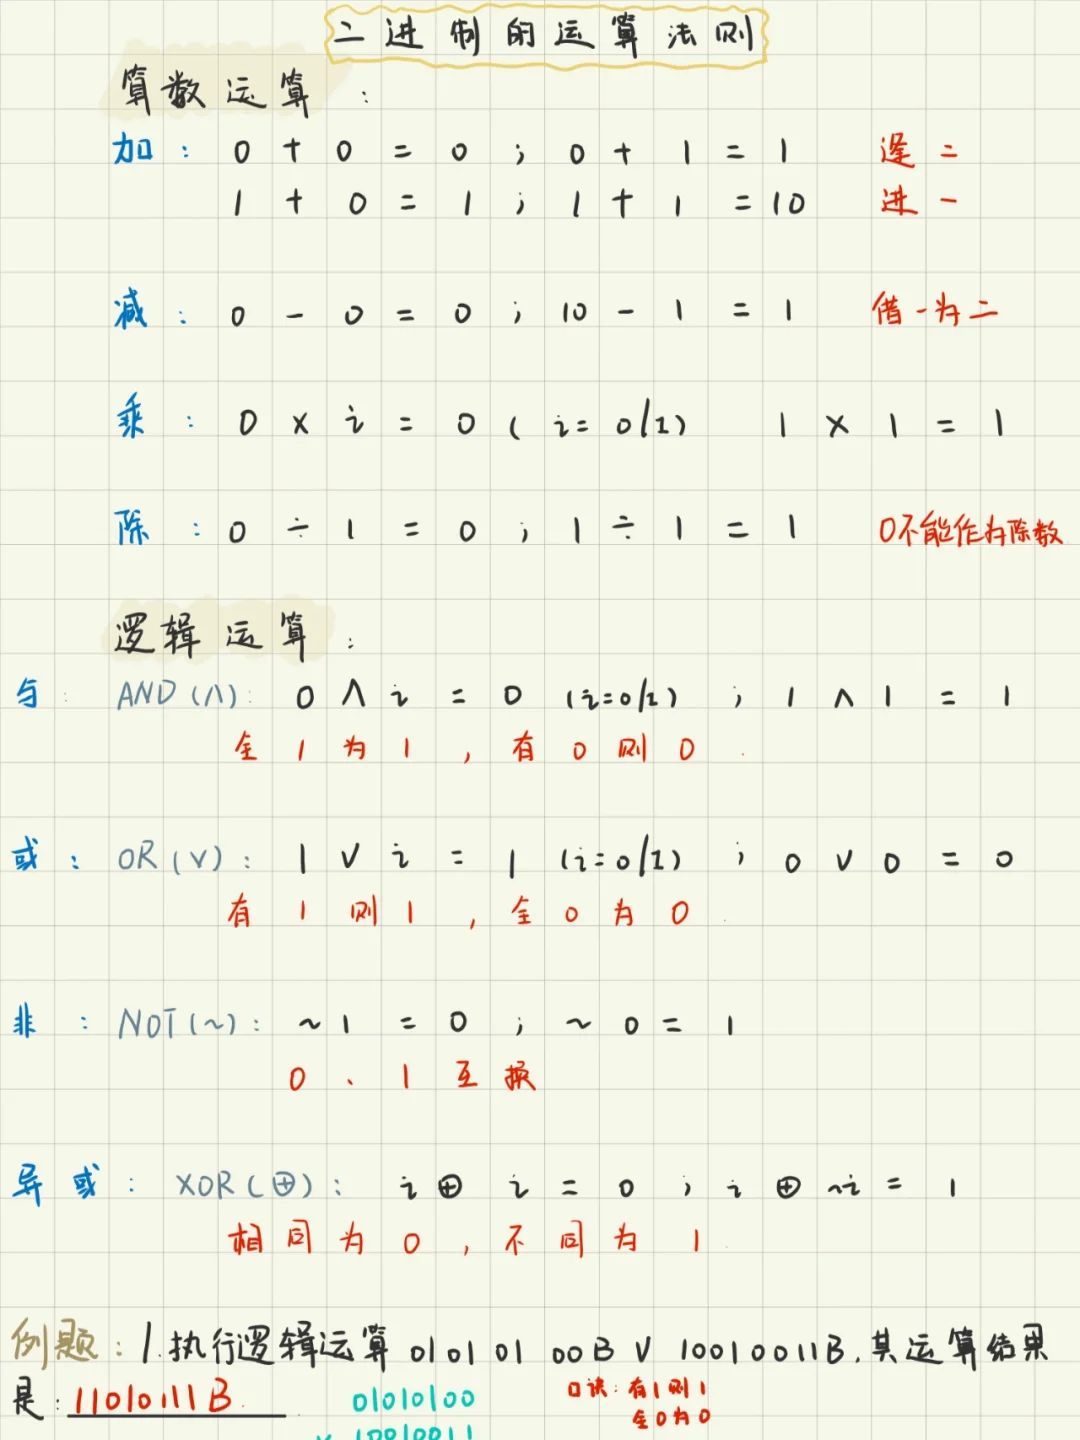 二进制的运算法则
算数运算：
加： 0 + 0 = 0 ; 0 + 1 = 1 逢二
1 + 0 = 1 ; 1 + 1 = 10 进一
减： 0 - 0 = 0 ; 10 - 1 = 1 借一为二
乘： 0 × i = 0 ( i = 0/1) 1 × 1 = 1
除： 0 ÷ 1 = 0 ; 1 ÷ 1 = 1 0不能作为除数
逻辑运算：
与： AND (∧)： 0 ∧ i = 0 (i=0/1) ; 1 ∧ 1 = 1
全1为1，有0则0.
或： OR (∨)： 1 ∨ i = 1 (i=0/1) ; 0 ∨ 0 = 0
有1则1，全0为0.
非： NOT (~)： ~1 = 0 ; ~0 = 1
0、1互换
异或： XOR (⊕)： i ⊕ i = 0 ; i ⊕ ~i = 1
相同为0，不同为1
例题：1.执行逻辑运算 01010100B ∨ 10010011B.其运算结果
是：11010111B. 01010100 口诀：有1则1
全0为0
∨ 10010011